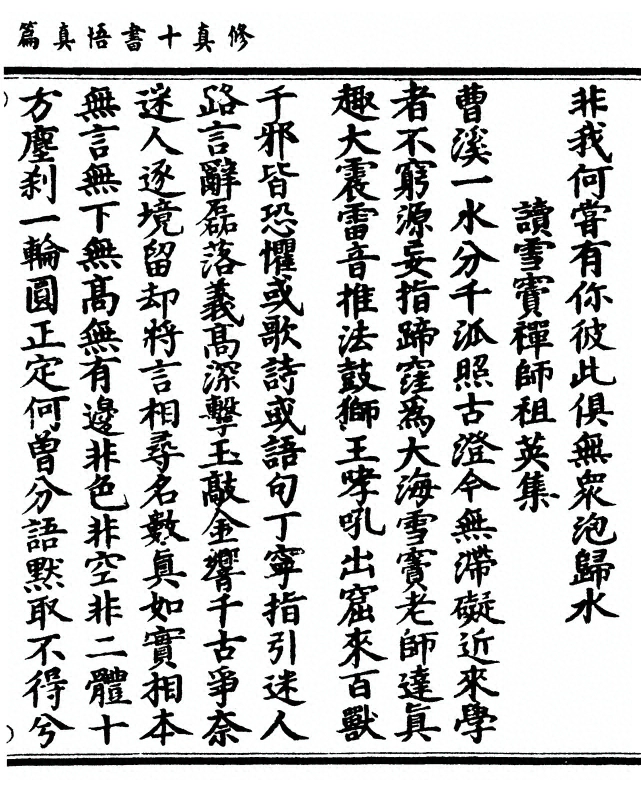 修真十書悟真篇
非我何嘗有你彼此俱無衆泡歸水
讀雪竇禪師祖英集
曹溪一水分千派照古澄今無滯礙近來學
者不窮源妄指蹄窪為大海雪竇老師達真
趣大震雷音推法鼓獅王哮吼出窟來百獸
千邪皆恐懼或歌詩或語句丁寧指引迷人
路言辭磊落義髙深擊玉敲金響千古爭奈
迷人逐境留却將言相尋名數真如實相本
無言無下無髙無有邊非色非空非二體十
方塵刹一輪圓正定何曾分語默取不得兮